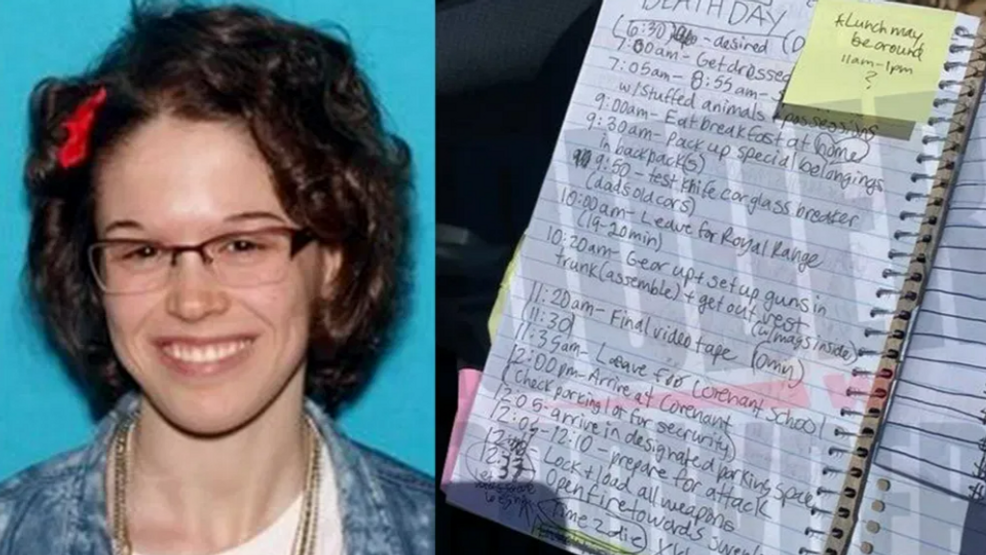 DEATH DAY
(6:30 - desired
7:00am - Get dressed
7:05am - 8:55am -
w/stuffed animals + possessions
9:00am - Eat breakfast at (home)
9:30am - Pack up special belongings
in backpack(s)
9:50 - test knife car glass breaker
(dads old cars)
10:00am - Leave for Royal Range
(19-20min)
10:20am - Gear up + set up guns in
trunk (assemble) + get out vest
(w/mags inside)
11:20am - Final video tape (Omy)
11:30
11:35am - Leave for Covenant School
12:00pm - Arrive at Covenant
(Check parking lot for security)
12:05 - arrive in designated parking space
12:05 - 12:10 - prepare for attack
Lock + load all weapons
Open fire towards
Time 2 die
*Lunch may
be around
11am - 1pm
?